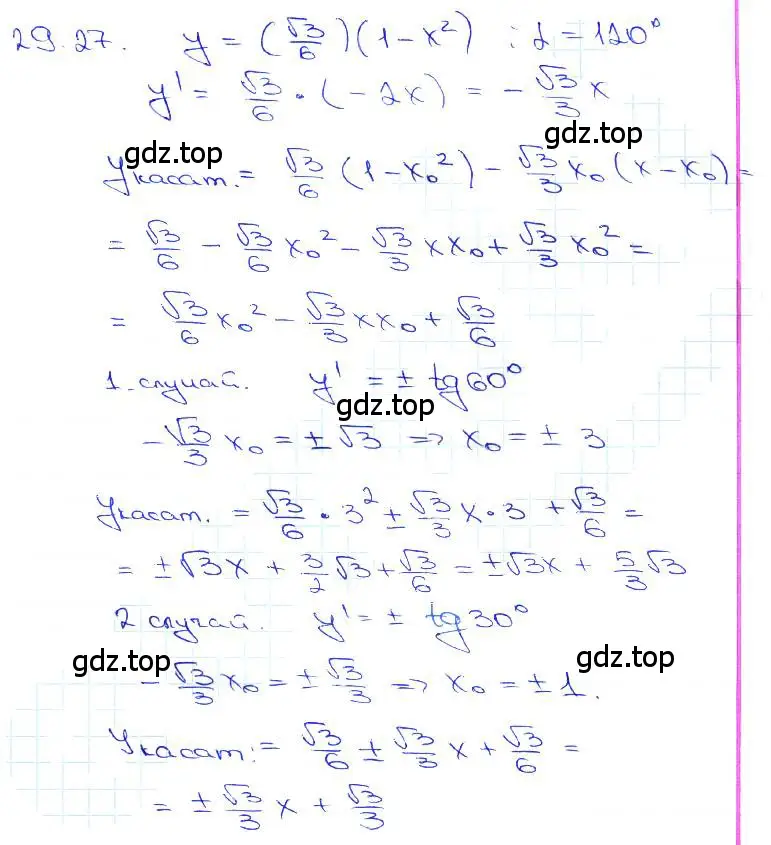 29.27. y = (√3/6)(1-x²) : α = 120°
y' = √3/6 · (-2x) = - √3/3 x
gdz.top
gdz.top
Yкасат. = √3/6 (1-x₀²) - √3/3 x₀ (x-x₀) =
= √3/6 - √3/6 x₀² - √3/3 xx₀ + √3/3 x₀² =
= √3/6 x₀² - √3/3 xx₀ + √3/6
1. случай. y' = ± tg60°
gdz.top
-√3/3 x₀ = ± √3 => x₀ = ± 3
Yкасат. = √3/6 · 3² ± √3/3 x · 3 + √3/6 =
= ± √3x + 3/2 √3 + √3/6 = ± √3x + 5/3 √3
2 случай. y' = ± tg30°
gdz.top
gdz.top
- √3/3 x₀ = ± √3/3 => x₀ = ± 1.
Yкасат: = √3/6 ± √3/3 x + √3/6 =
= ± √3/3 x + √3/3